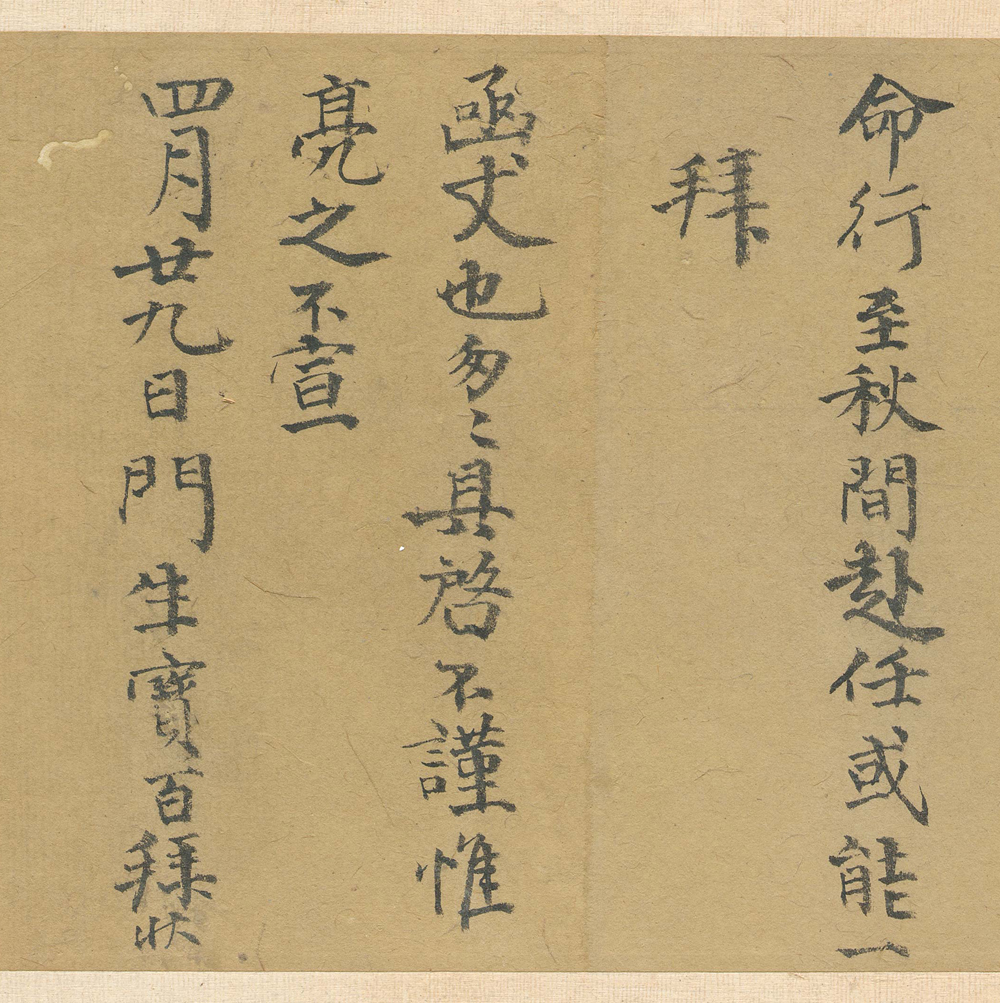 命行至秋間赴任或能一
拜
函丈也匆〻具啓不謹惟
亮之不宣
四月廿九日門生寶百拜狀